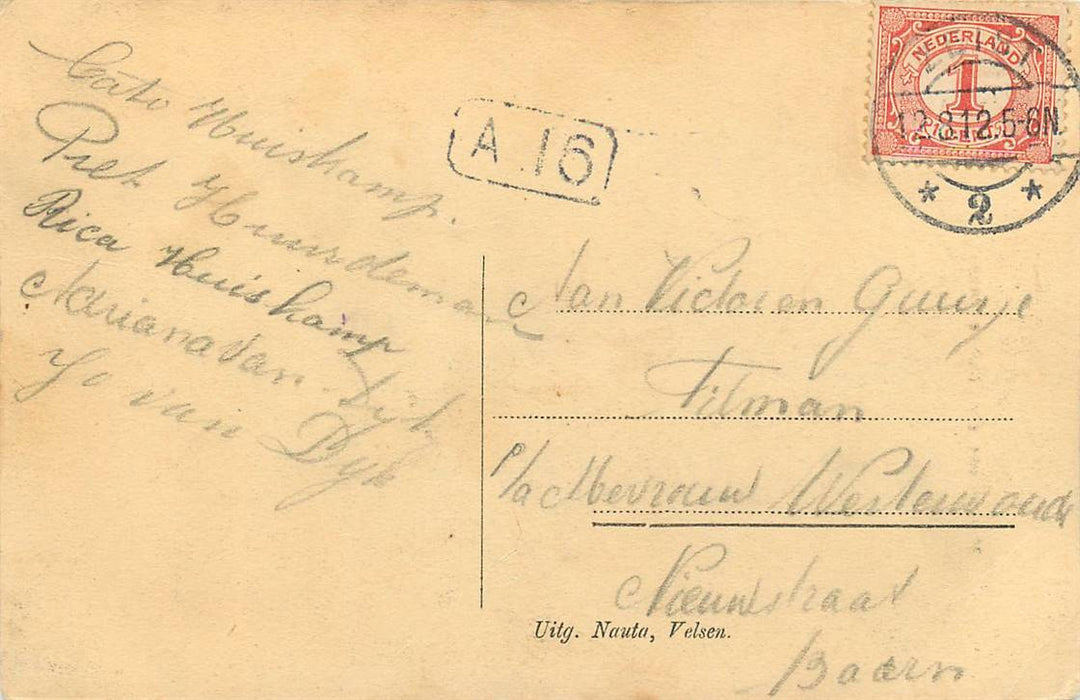 Cato Huiskamp.
Piet Huusdeman
Rica Huiskamp
Adriana van Dijk
Jo van Dyk
A. 16
NEDERLAND
1
12.8.12.5-6N
* 2 *
Aan Victor en Guusje
Tilman
p/a Mevrouw Westerwoudt
Nieuwstraat
Baarn
Uitg. Nauta, Velsen.